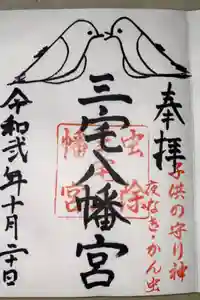 奉拝
子供の守り神
夜なきかん虫
三宅八幡宮
虫除
幡宮
令和弐年十月二十日